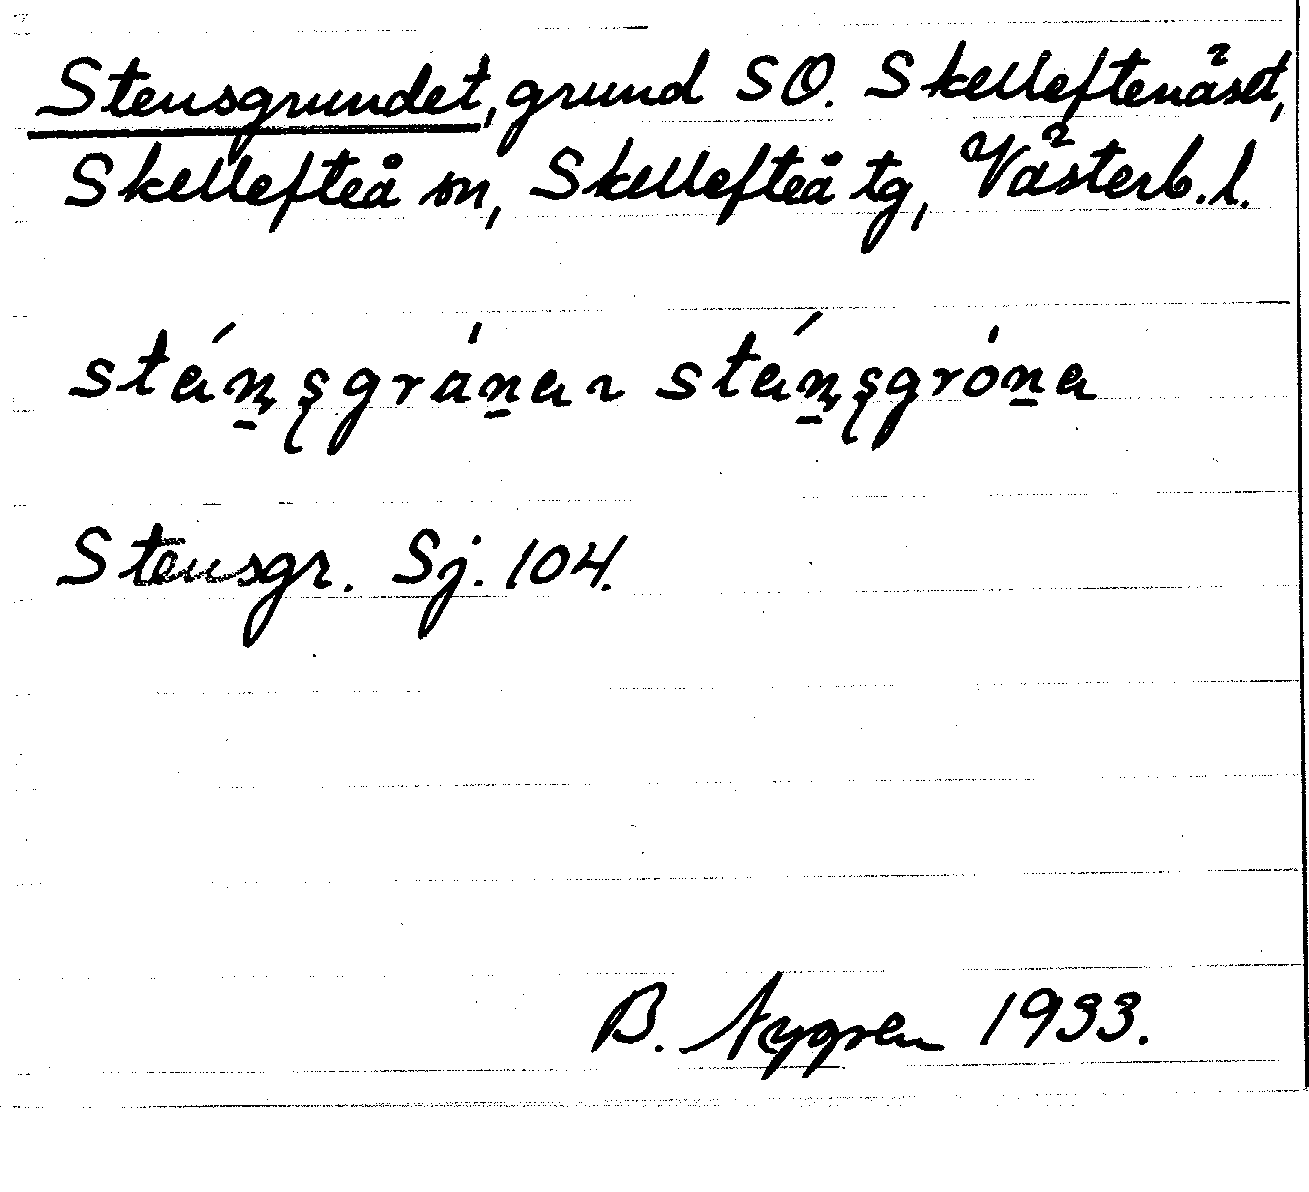 Stensgrundet, grund SO. Skelleftenäset,
Skellefteå sn, Skellefteå tg, Västerb. l.
Stensgr. Sj. 104.
B. Nygren 1933.